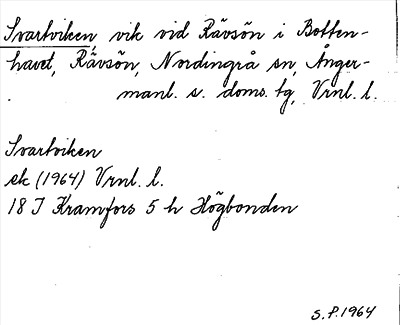 Svartviken, vik vid Rävsön i Botten-
havet, Rävsön, Nordingrå sn, Ånger-
manl. s. doms. tg, Vrnl. l.
Svartviken
ek (1964) Vrnl. l.
18 I Kramfors 5 h Högbonden
S.P. 1964